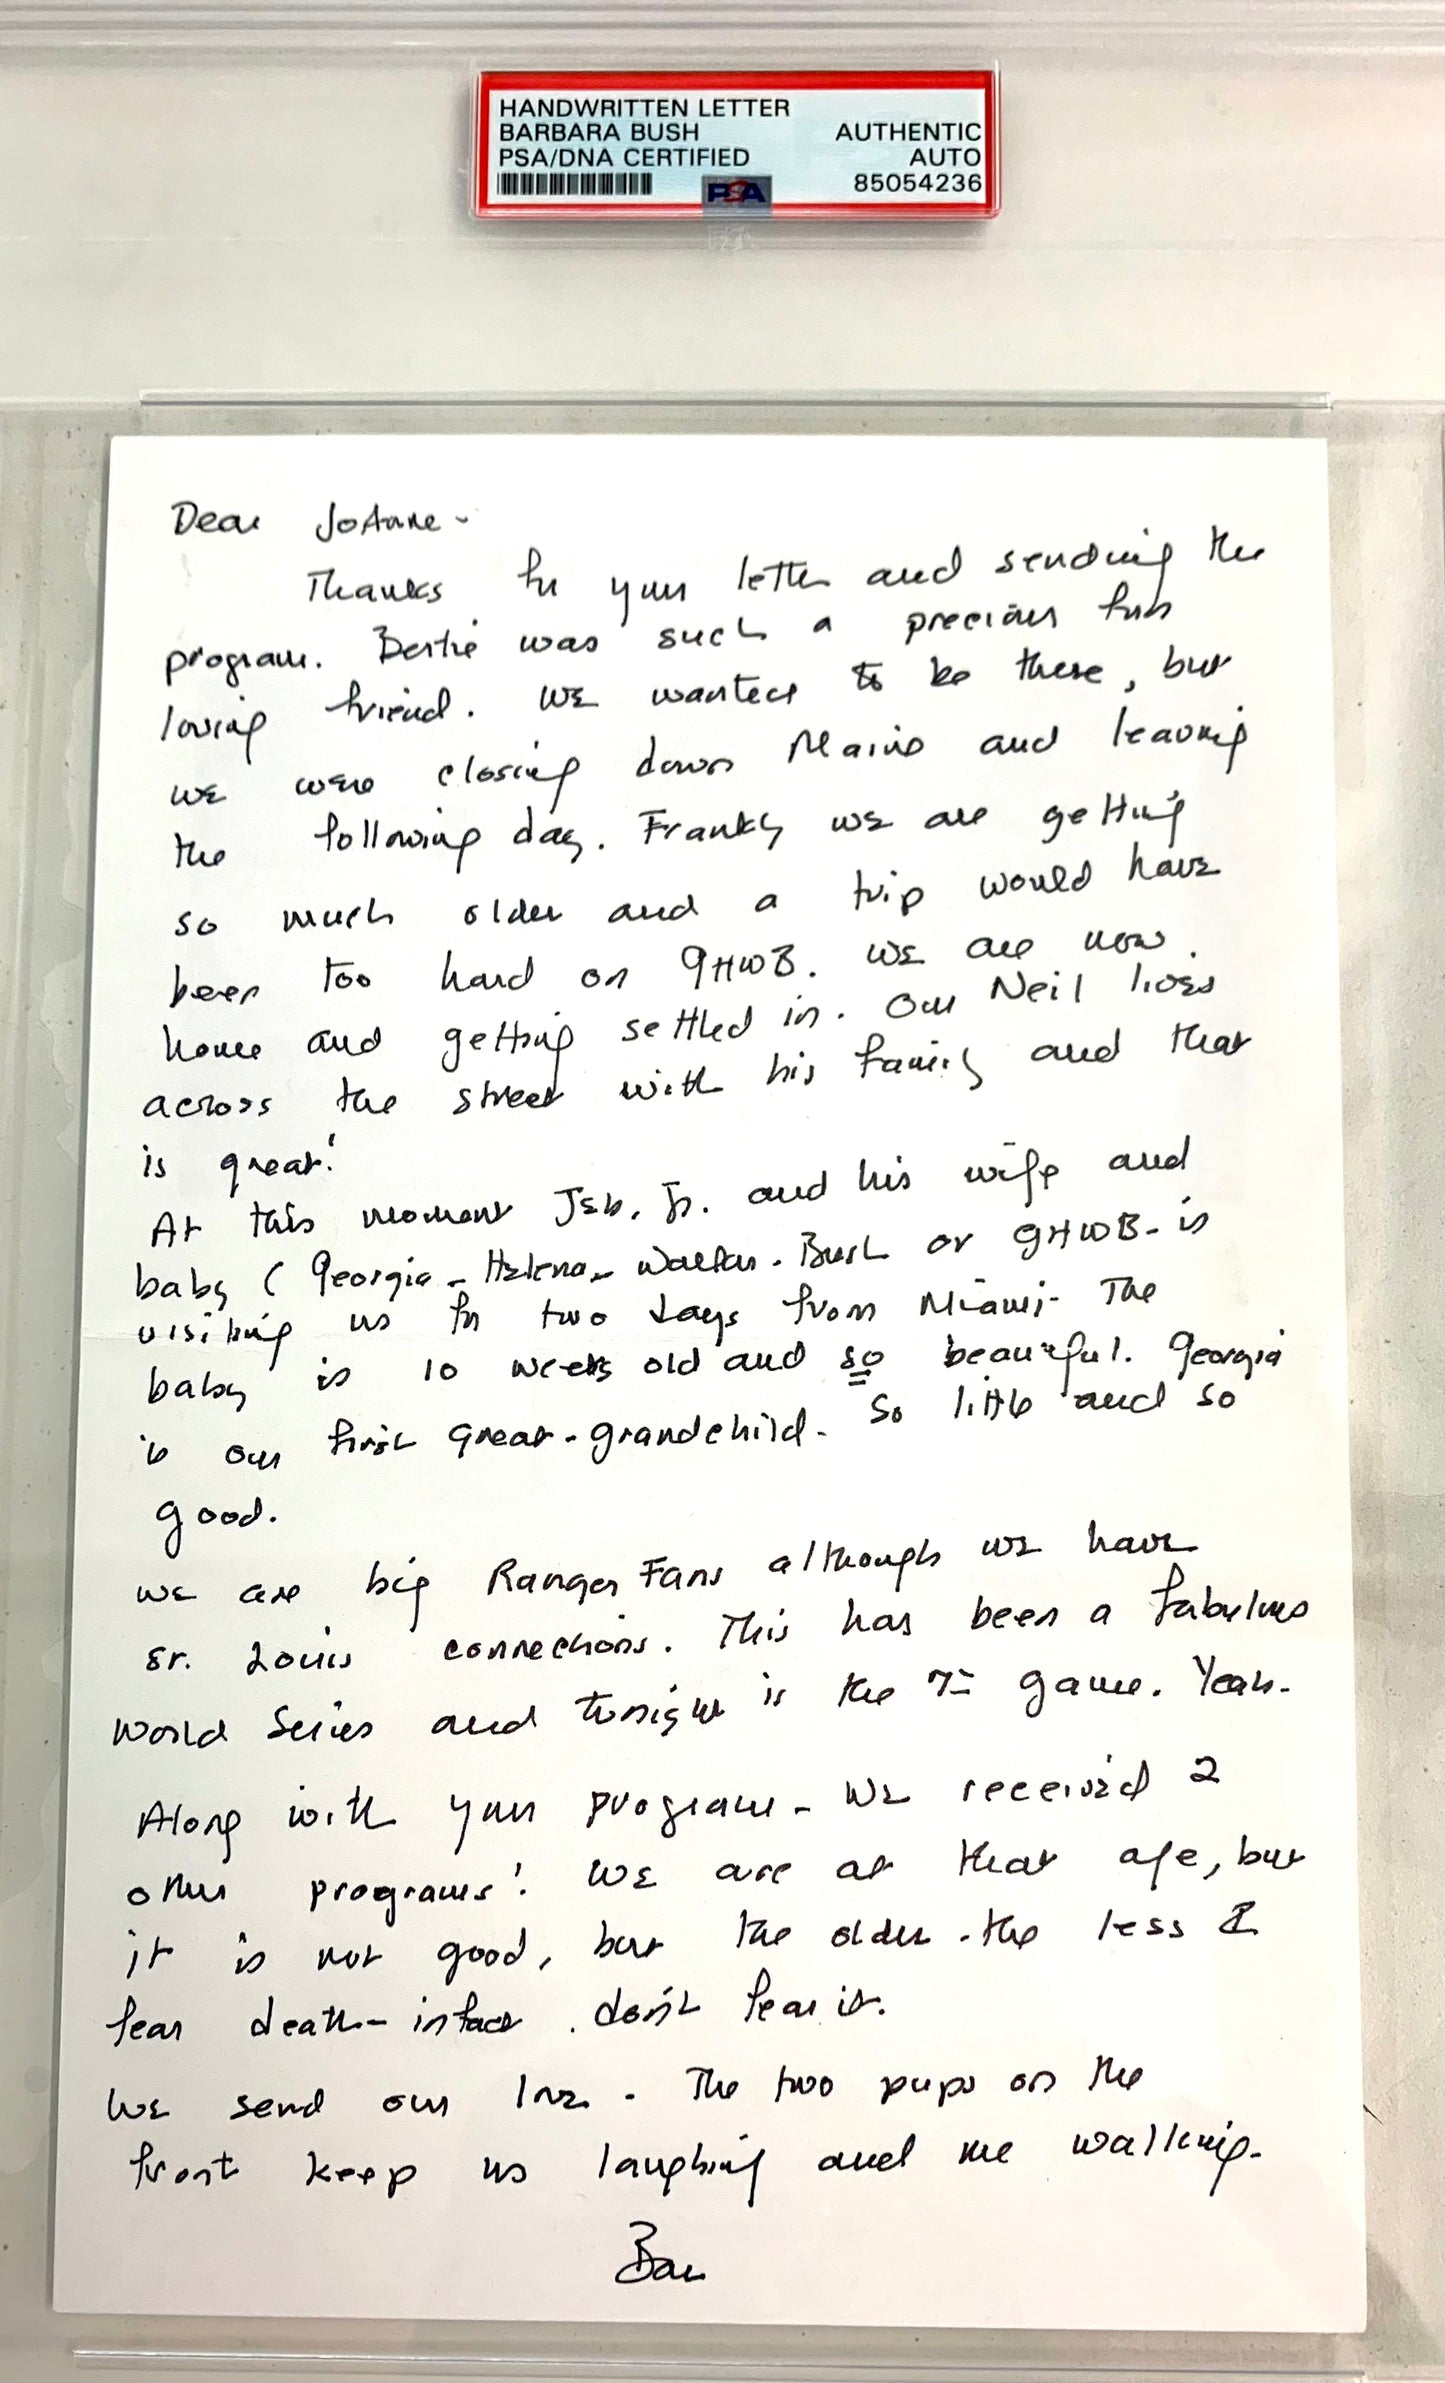 HANDWRITTEN LETTER
BARBARA BUSH
PSA/DNA CERTIFIED
AUTHENTIC
AUTO
85054236
PSA
Dear JoAnne -
Thanks for your letter and sending the
program. Bertie was such a precious fun
loving friend. We wanted to be there, but
we were closing down Maine and leaving
the following day. Frankly we are getting
so much older and a trip would have
been too hard on GHWB. We are now
home and getting settled in. Our Neil lives
across the street with his family and that
is great!
At this moment Jeb, Jr. and his wife and
baby (Georgia - Helena - Walker - Bush or GHWB - is
visiting us for two days from Miami - The
baby is 10 weeks old and so beautiful. Georgia
is our first great-grandchild - So little and so
good.
We are big Ranger Fans although we have
St. Louis connections. This has been a fabulous
World Series and tonight is the 7th game. Yeah -
Along with your program - We received 2
other programs! We are at that age, but
it is not good, but the older - the less I
fear death - infact . don't fear it.
We send our love - The two pups on the
front keep us laughing and me walking -
Bar